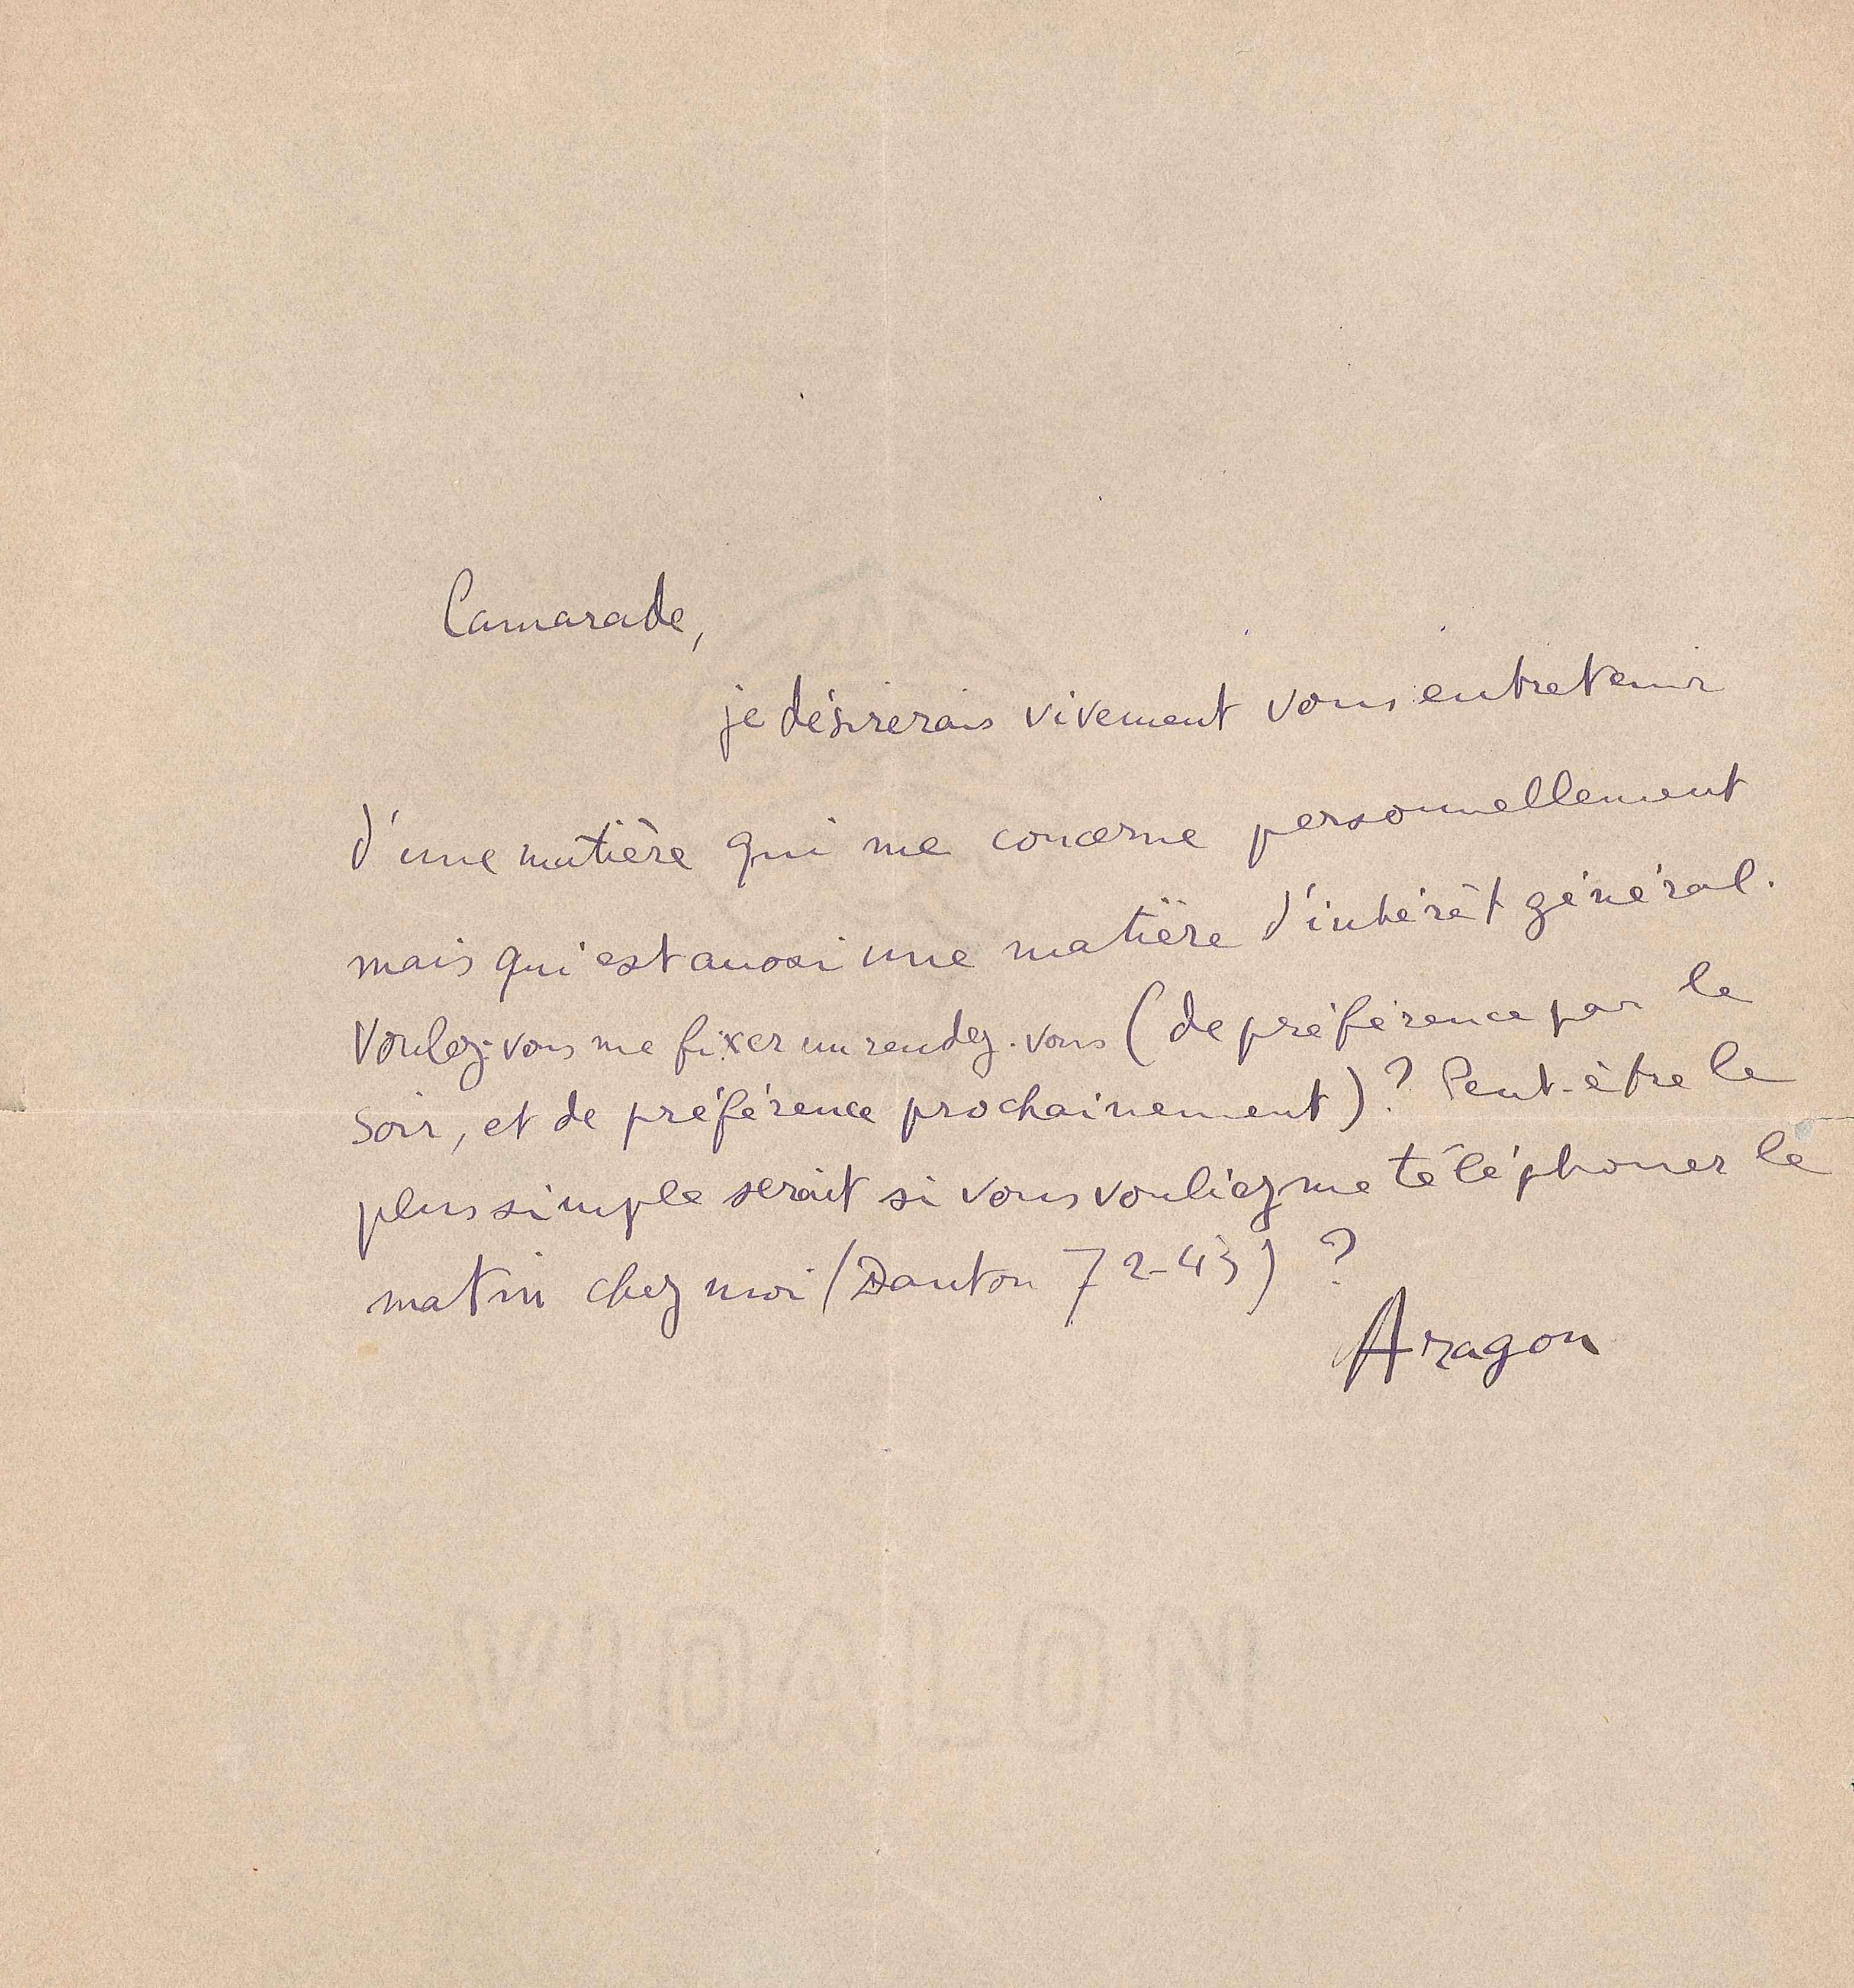 Camarade,
je désirerais vivement vous entretenir
d'une matière qui me concerne personnellement
mais qui est aussi une matière d'intérêt général.
Voulez-vous me fixer un rendez-vous (de préférence par le
soir, et de préférence prochainement)? Peut-être le
plus simple serait si vous vouliez me téléphoner le
matin chez moi (Danton 72-43) ?
Aragon
VIDALON